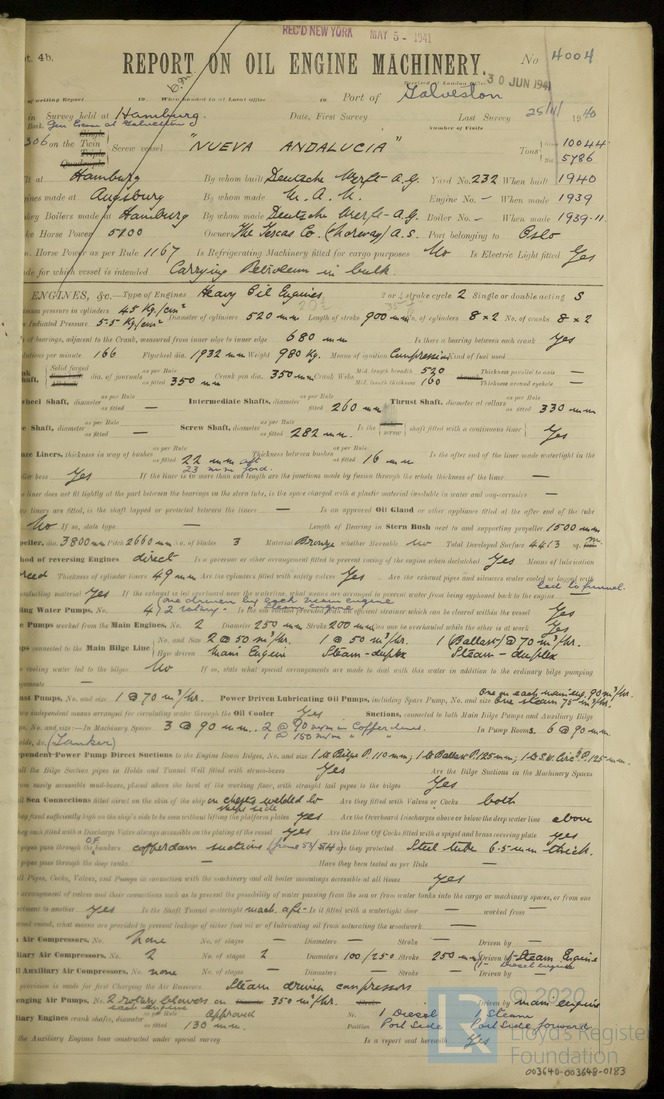 REC'D NEW YORK MAY 5 - 1941
pt. 4b.
REPORT ON OIL ENGINE MACHINERY.
No 4004
30 JUN 1941
of writing Report 19 When handed in at Local Office 19 Port of Galveston
in Survey held at Hamburg. Date, First Survey Last Survey 25/11/1940
Number of Visits
306 on the Twin Screw vessel "NUEVA ANDALUCIA" Tons 10044
5786
lt at Hamburg By whom built Deutsche Werft A.G. Yard No. 232 When built 1940
ines made at Augsburg By whom made M.A.N. Engine No. — When made 1939
key Boilers made at Hamburg By whom made Deutsche Werft A.G. Boiler No. — When made 1939-11
ke Horse Power 5800 Owners The Texas Co. (Norway) A.S. Port belonging to Oslo
n. Horse Power as per Rule 1167 Is Refrigerating Machinery fitted for cargo purposes No Is Electric Light fitted Yes
de for which vessel is intended Carrying Petroleum in bulk.
ENGINES, &c. —Type of Engines Heavy Oil Engines 2 or 4 stroke cycle 2 Single or double acting S
imum pressure in cylinders 45 Kg./cm² Diameter of cylinders 520 mm Length of stroke 900 mm No. of cylinders 8 x 2 No. of cranks 8 x 2
n Indicated Pressure 5.5 Kg/cm²
of bearings, adjacent to the Crank, measured from inner edge to inner edge 680 mm Is there a bearing between each crank Yes
olutions per minute 166 Flywheel dia. 1932 mm Weight 980 Kg. Means of ignition Compression Kind of fuel used
haft, dia. of journals as per Rule as fitted 350 mm Crank pin dia. 350 mm Crank Webs Mid. length breadth 520 Thickness parallel to axis —
Mid. length thickness 160 Thickness around eyehole —
wheel Shaft, diameter as per Rule as fitted — Intermediate Shafts, diameter as per Rule as fitted 260 mm Thrust Shaft, diameter at collars as per Rule as fitted 330 mm
e Shaft, diameter as per Rule as fitted — Screw Shaft, diameter as per Rule as fitted 282 mm. Is the screw shaft fitted with a continuous liner Yes
nze Liners, thickness in way of bushes as per Rule as fitted 22 mm aft 23 mm ford. Thickness between bushes as per Rule as fitted 16 mm Is the after end of the liner made watertight in the
ller boss Yes If the liner is in more than one length are the junctions made by fusion through the whole thickness of the liner —
e liner does not fit tightly at the part between the bearings in the stern tube, is the space charged with a plastic material insoluble in water and non-corrosive —
o liners are fitted, is the shaft lapped or protected between the liners — Is an approved Oil Gland or other appliance fitted at the after end of the tube
No If so, state type — Length of Bearing in Stern Bush next to and supporting propeller 1500 mm
peller, dia. 3800 mm Pitch 2660 mm No. of blades 3 Material Bronze whether Moveable No Total Developed Surface 4.413 sq.
hod of reversing Engines direct Is a governor or other arrangement fitted to prevent racing of the engine when declutched Yes Means of lubrication
rced Thickness of cylinder liners 49 mm Are the cylinders fitted with safety valves Yes Are the exhaust pipes and silencers water cooled or lagged with
nducting material Yes If the exhaust is led overboard near the waterline, what means are arranged to prevent water from being syphoned back to the engine led to funnel.
ing Water Pumps, No. 4 one driven by each main engine 2 rotary Is the sea suction provided with an efficient strainer which can be cleared within the vessel Yes
e Pumps worked from the Main Engines, No. 2 Diameter 250 mm Stroke 200 mm Can one be overhauled while the other is at work Yes
ps connected to the Main Bilge Line No. and Size 2 @ 50 m³/hr. 1 @ 50 m³/hr. 1 (Ballast) @ 70 m³/hr.
How driven Main Engine Steam-duplex Steam-duplex
e cooling water led to the bilges No If so, state what special arrangements are made to deal with this water in addition to the ordinary bilge pumping
gements —
ast Pumps, No. and size 1 @ 70 m³/hr. Power Driven Lubricating Oil Pumps, including Spare Pump, No. and size one on each main eng. 90 m³/hr. one steam 75 m³/hr.
wo independent means arranged for circulating water through the Oil Cooler Yes Suctions, connected to both Main Bilge Pumps and Auxiliary Bilge
ps, No. and size:—In Machinery Spaces 3 @ 90 mm. 2 @ 90 mm in Cofferdams. In Pump Rooms 6 @ 90 mm
olds, &c. (Tanker) 1 @ 150 mm
pendent Power Pump Direct Suctions to the Engine Room Bilges, No. and size 1 to Bilge P. 110 mm; 1 to Ballast P. 125 mm; 1 to S.W. Circ. P. 125 mm.
all the Bilge Suction pipes in Holds and Tunnel Well fitted with strum-boxes Yes Are the Bilge Suctions in the Machinery Spaces
rom easily accessible mud-boxes, placed above the level of the working floor, with straight tail pipes to the bilges Yes
ll Sea Connections fitted direct on the skin of the ship on chests welded to ships side Are they fitted with Valves or Cocks both
they fixed sufficiently high on the ship's side to be seen without lifting the platform plates Yes Are the Overboard Discharges above or below the deep water line above
hey each fitted with a Discharge Valve always accessible on the plating of the vessel yes Are the Blow Off Cocks fitted with a spigot and brass covering plate yes
pipes pass through the bunkers cofferdam suctions How are they protected Steel tube 6.5 mm thick.
pipes pass through the deep tanks — Have they been tested as per Rule —
all Pipes, Cocks, Valves, and Pumps in connection with the machinery and all boiler mountings accessible at all times Yes
e arrangement of valves and their connections such as to prevent the possibility of water passing from the sea or from water tanks into the cargo or machinery spaces, or from one
rtment to another Yes Is the Shaft Tunnel watertight mach. aft. Is it fitted with a watertight door — worked from —
ood vessel, what means are provided to prevent leakage of either fuel oil or of lubricating oil from saturating the woodwork —
n Air Compressors, No. None No. of stages — Diameters — Stroke — Driven by —
iliary Air Compressors, No. 2 No. of stages 2 Diameters 100/250 Stroke 250 mm Driven by 1 Steam Engine 1 Diesel engine
ll Auxiliary Air Compressors, No. none No. of stages — Diameters — Stroke — Driven by —
provision is made for first Charging the Air Receivers Steam driven compressors
enging Air Pumps, No. 2 rotary blowers on each engine 350 m³/hr. Driven by main engines
iliary Engines crank shafts, diameter as per Rule Approved No. 1 Diesel 1 Steam
as fitted 130 mm. Position Port Side Port Side forward
the Auxiliary Engines been constructed under special survey Is a report sent herewith Yes
© 2020
LR
Lloyd's Register
Foundation
003640-003648-0183